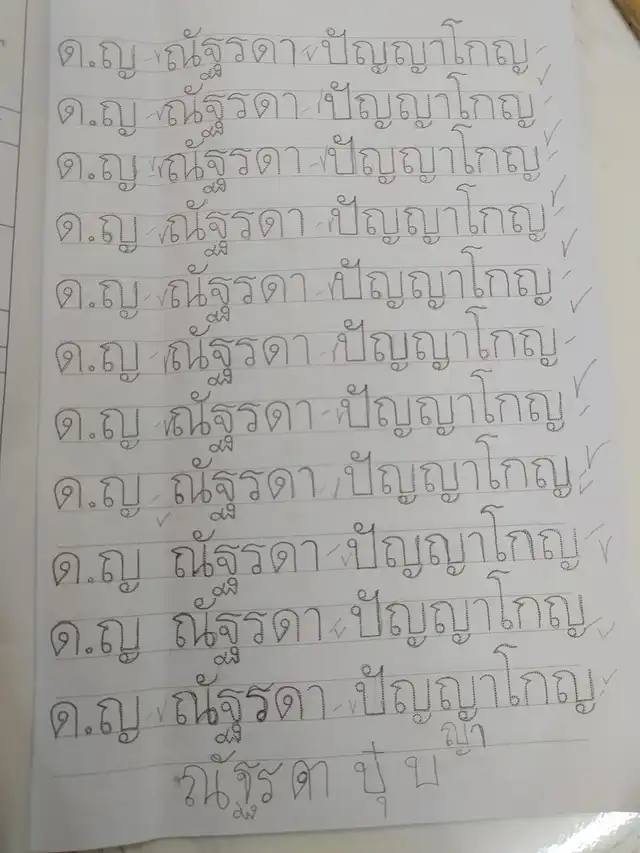 ด.ญ ณัฐรดา ปัญญาโกญ
ด.ญ ณัฐรดา ปัญญาโกญ
ด.ญ ณัฐรดา ปัญญาโกญ
ด.ญ ณัฐรดา ปัญญาโกญ
ด.ญ ณัฐรดา ปัญญาโกญ
ด.ญ ณัฐรดา ปัญญาโกญ
ด.ญ ณัฐรดา ปัญญาโกญ
ด.ญ ณัฐรดา ปัญญาโกญ
ด.ญ ณัฐรดา ปัญญาโกญ
ด.ญ ณัฐรดา ปัญญาโกญ
ด.ญ ณัฐรดา ปัญญาโกญ
ณัฐรดา